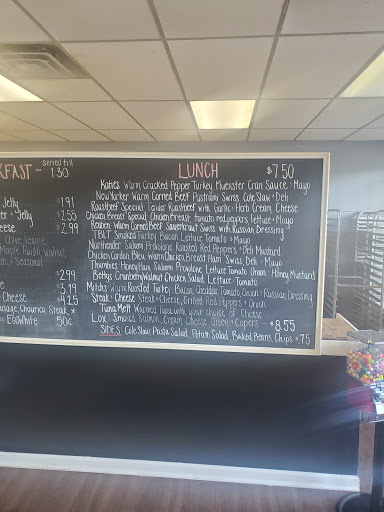 KFAST ~ served till 1:30
Jelly 1.91
+ Jelly $2.55
eese $2.99
Maple Raisin Walnut,
Seasonal
$2.99
$3.19
Cheese $4.25
usage, Chourico, Steak *
EggWhite 50¢
LUNCH $7.50
Katies Warm Cracked Pepper Turkey Muenster Cran Sauce + Mayo
New Yorker Warm Corned Beef Pastrami Swiss Cole Slaw + Deli
Roastbeef Special Tender Roastbeef with Garlic + Herb Cream Cheese
Chicken Breast Special Chicken Breast, tomato red peppers, lettuce + Mayo
Reuben Warm Corned Beef Sauerkraut Swiss with Russian Dressing
TBLT Smoked Turkey Bacon Lettuce Tomato + Mayo
Northender Salami Provolone Roasted Red Peppers + Deli Mustard
Chicken Cordon Bleu Warm Chicken Breast Ham Swiss Deli + Mayo
Thumbies Honey Ham Salami Provolone Lettuce Tomato Onion Honey Mustard
Bettys Cranberry Walnut Chicken Salad Lettuce Tomato
Mitchs Warm Roasted Turkey Bacon Cheddar Tomato Onion + Russian Dressing
Steak + Cheese Steak + Cheese, Grilled Red Peppers + Onion
Tuna Melt Warmed Tuna with your choice of Cheese
Lox - Smoked Salmon, Cream Cheese Onion + Capers - $8.55
SIDES: Cole Slaw, Pasta Salad, Potato Salad, Baked Beans, Chips $.75